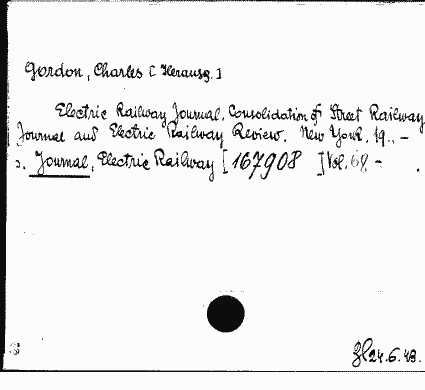 Gordon, Charles [Herausg.]
Electric Railway Journal. Consolidation of Street Railway
Journal and Electric Railway Review. New York. 19.. –
s. Journal, Electric Railway [167908 ] Vol. 68 –
24.6.48.